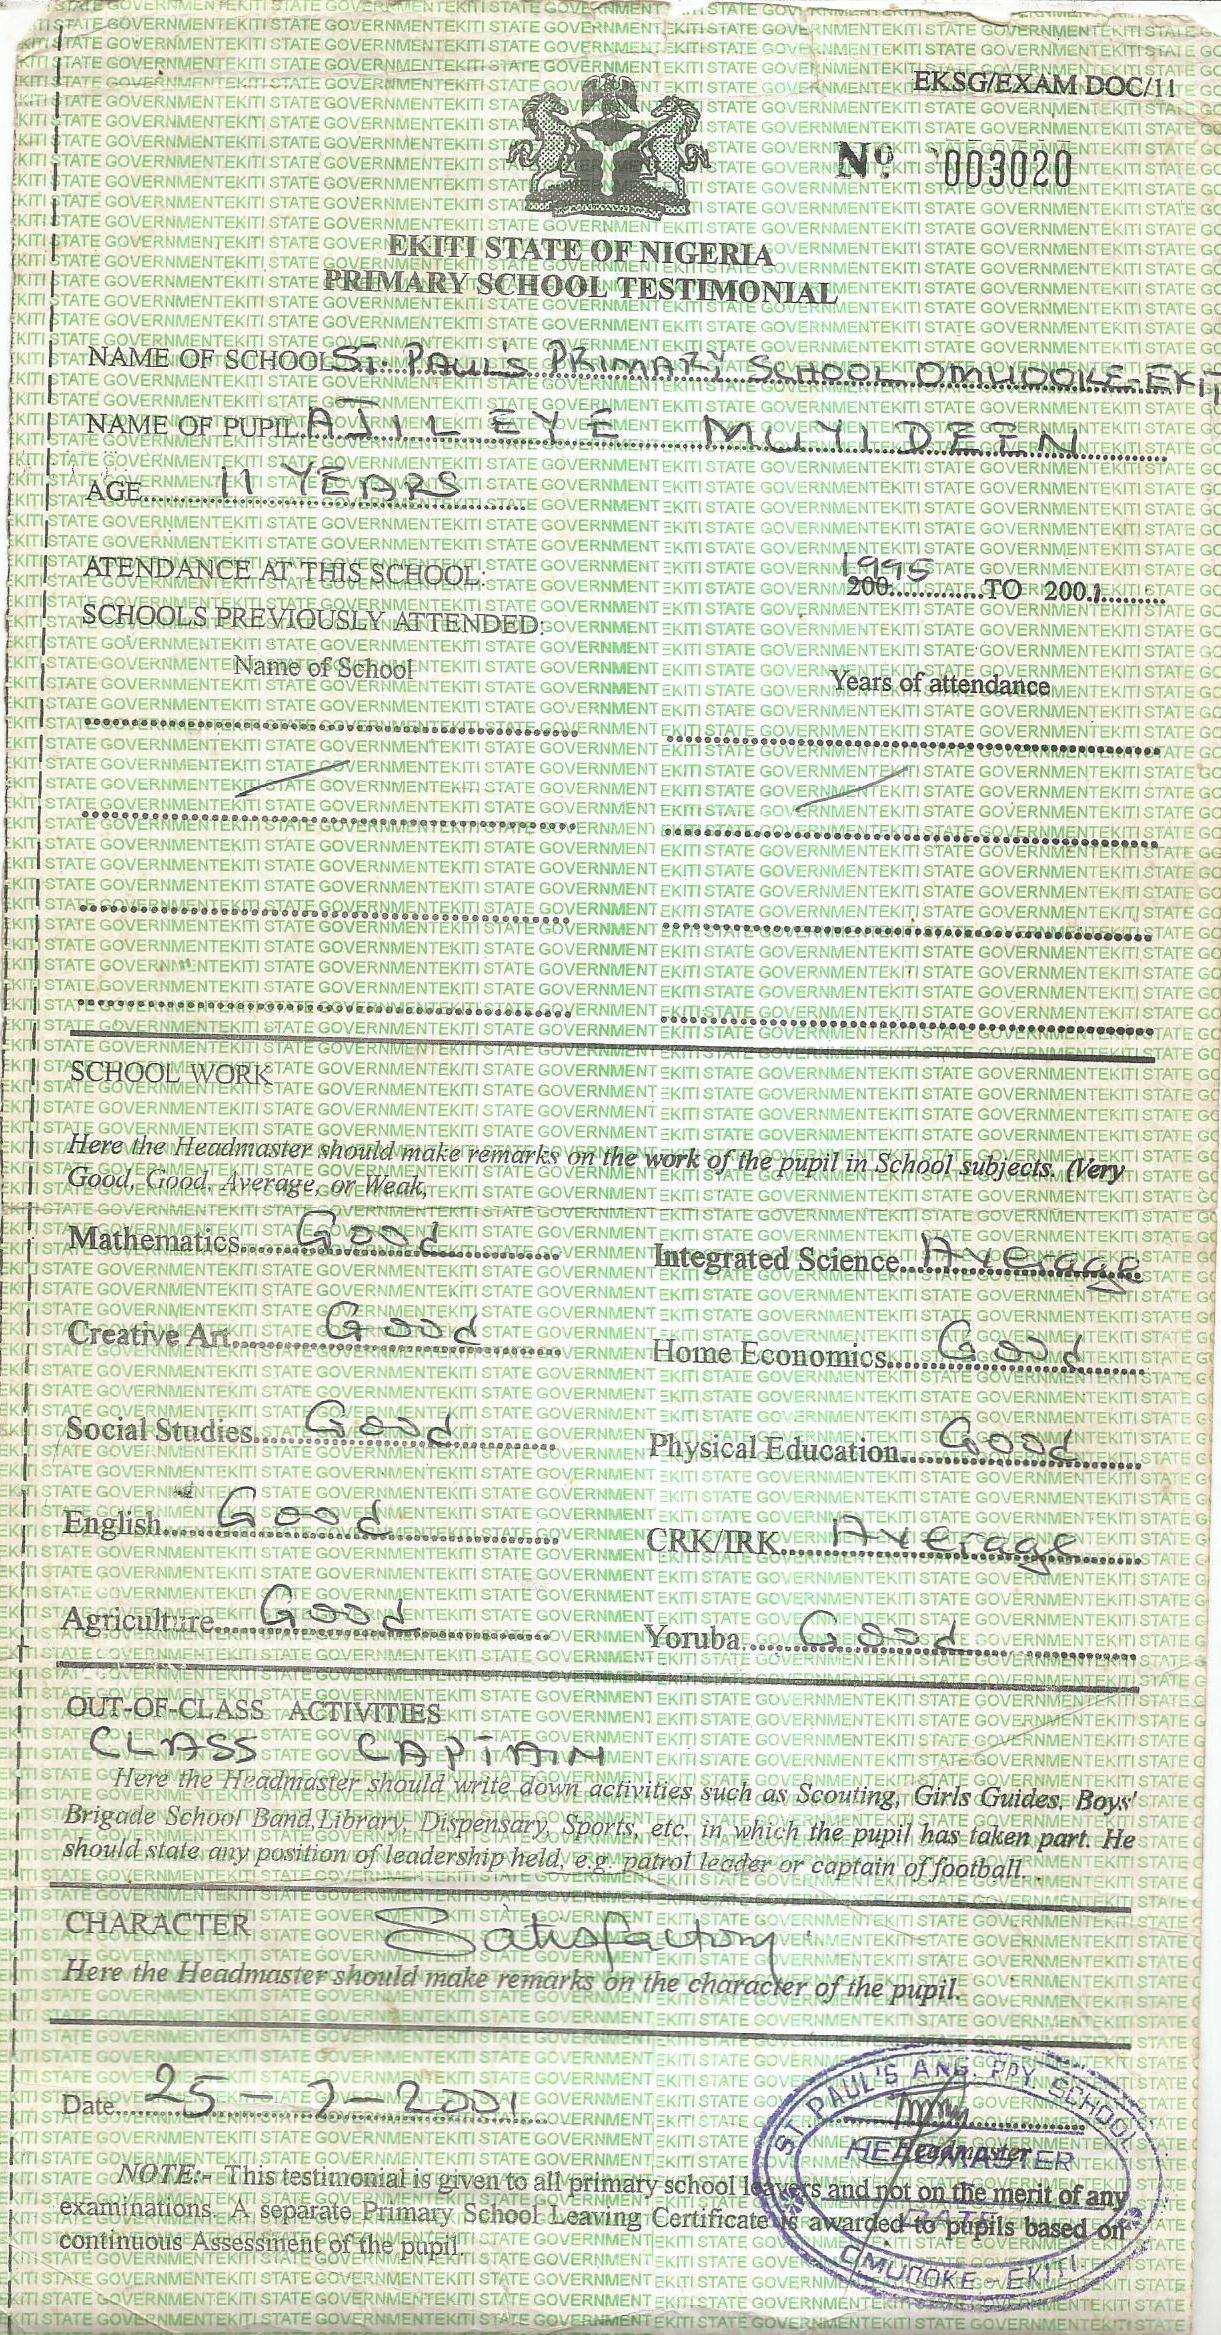 EKSG/EXAM DOC/11
Nº 003020
EKITI STATE OF NIGERIA
PRIMARY SCHOOL TESTIMONIAL
NAME OF SCHOOL ST. PAUL'S PRIMARY SCHOOL OMUOOKE-EKITI
NAME OF PUPIL AJILEYE MUYIDEEN
AGE 11 YEARS
ATENDANCE AT THIS SCHOOL: 1995 200 TO 2001
SCHOOLS PREVIOUSLY ATTENDED:
Name of School Years of attendance
SCHOOL WORK
Here the Headmaster should make remarks on the work of the pupil in School subjects. (Very
Good, Good, Average, or Weak,
Mathematics Good Integrated Science Average
Creative Art Good Home Economics Good
Social Studies Good Physical Education Good
English Good CRK/IRK Average
Agriculture Good Yoruba Good
OUT-OF-CLASS ACTIVITIES
CLASS CAPTAIN
Here the Headmaster should write down activities such as Scouting, Girls Guides, Boys'
Brigade School Band, Library, Dispensary, Sports, etc. in which the pupil has taken part. He
should state any position of leadership held, e.g. patrol leader or captain of football.
CHARACTER Satisfactory
Here the Headmaster should make remarks on the character of the pupil.
Date 25-7-2001
ST PAUL'S ANG. PRY. SCHOOL
Headmaster
HEADMASTER
DATE
OMUOOKE-EKITI.
NOTE:- This testimonial is given to all primary school leavers and not on the merit of any
examinations. A separate Primary School Leaving Certificate is awarded to pupils based on
continuous Assessment of the pupil.